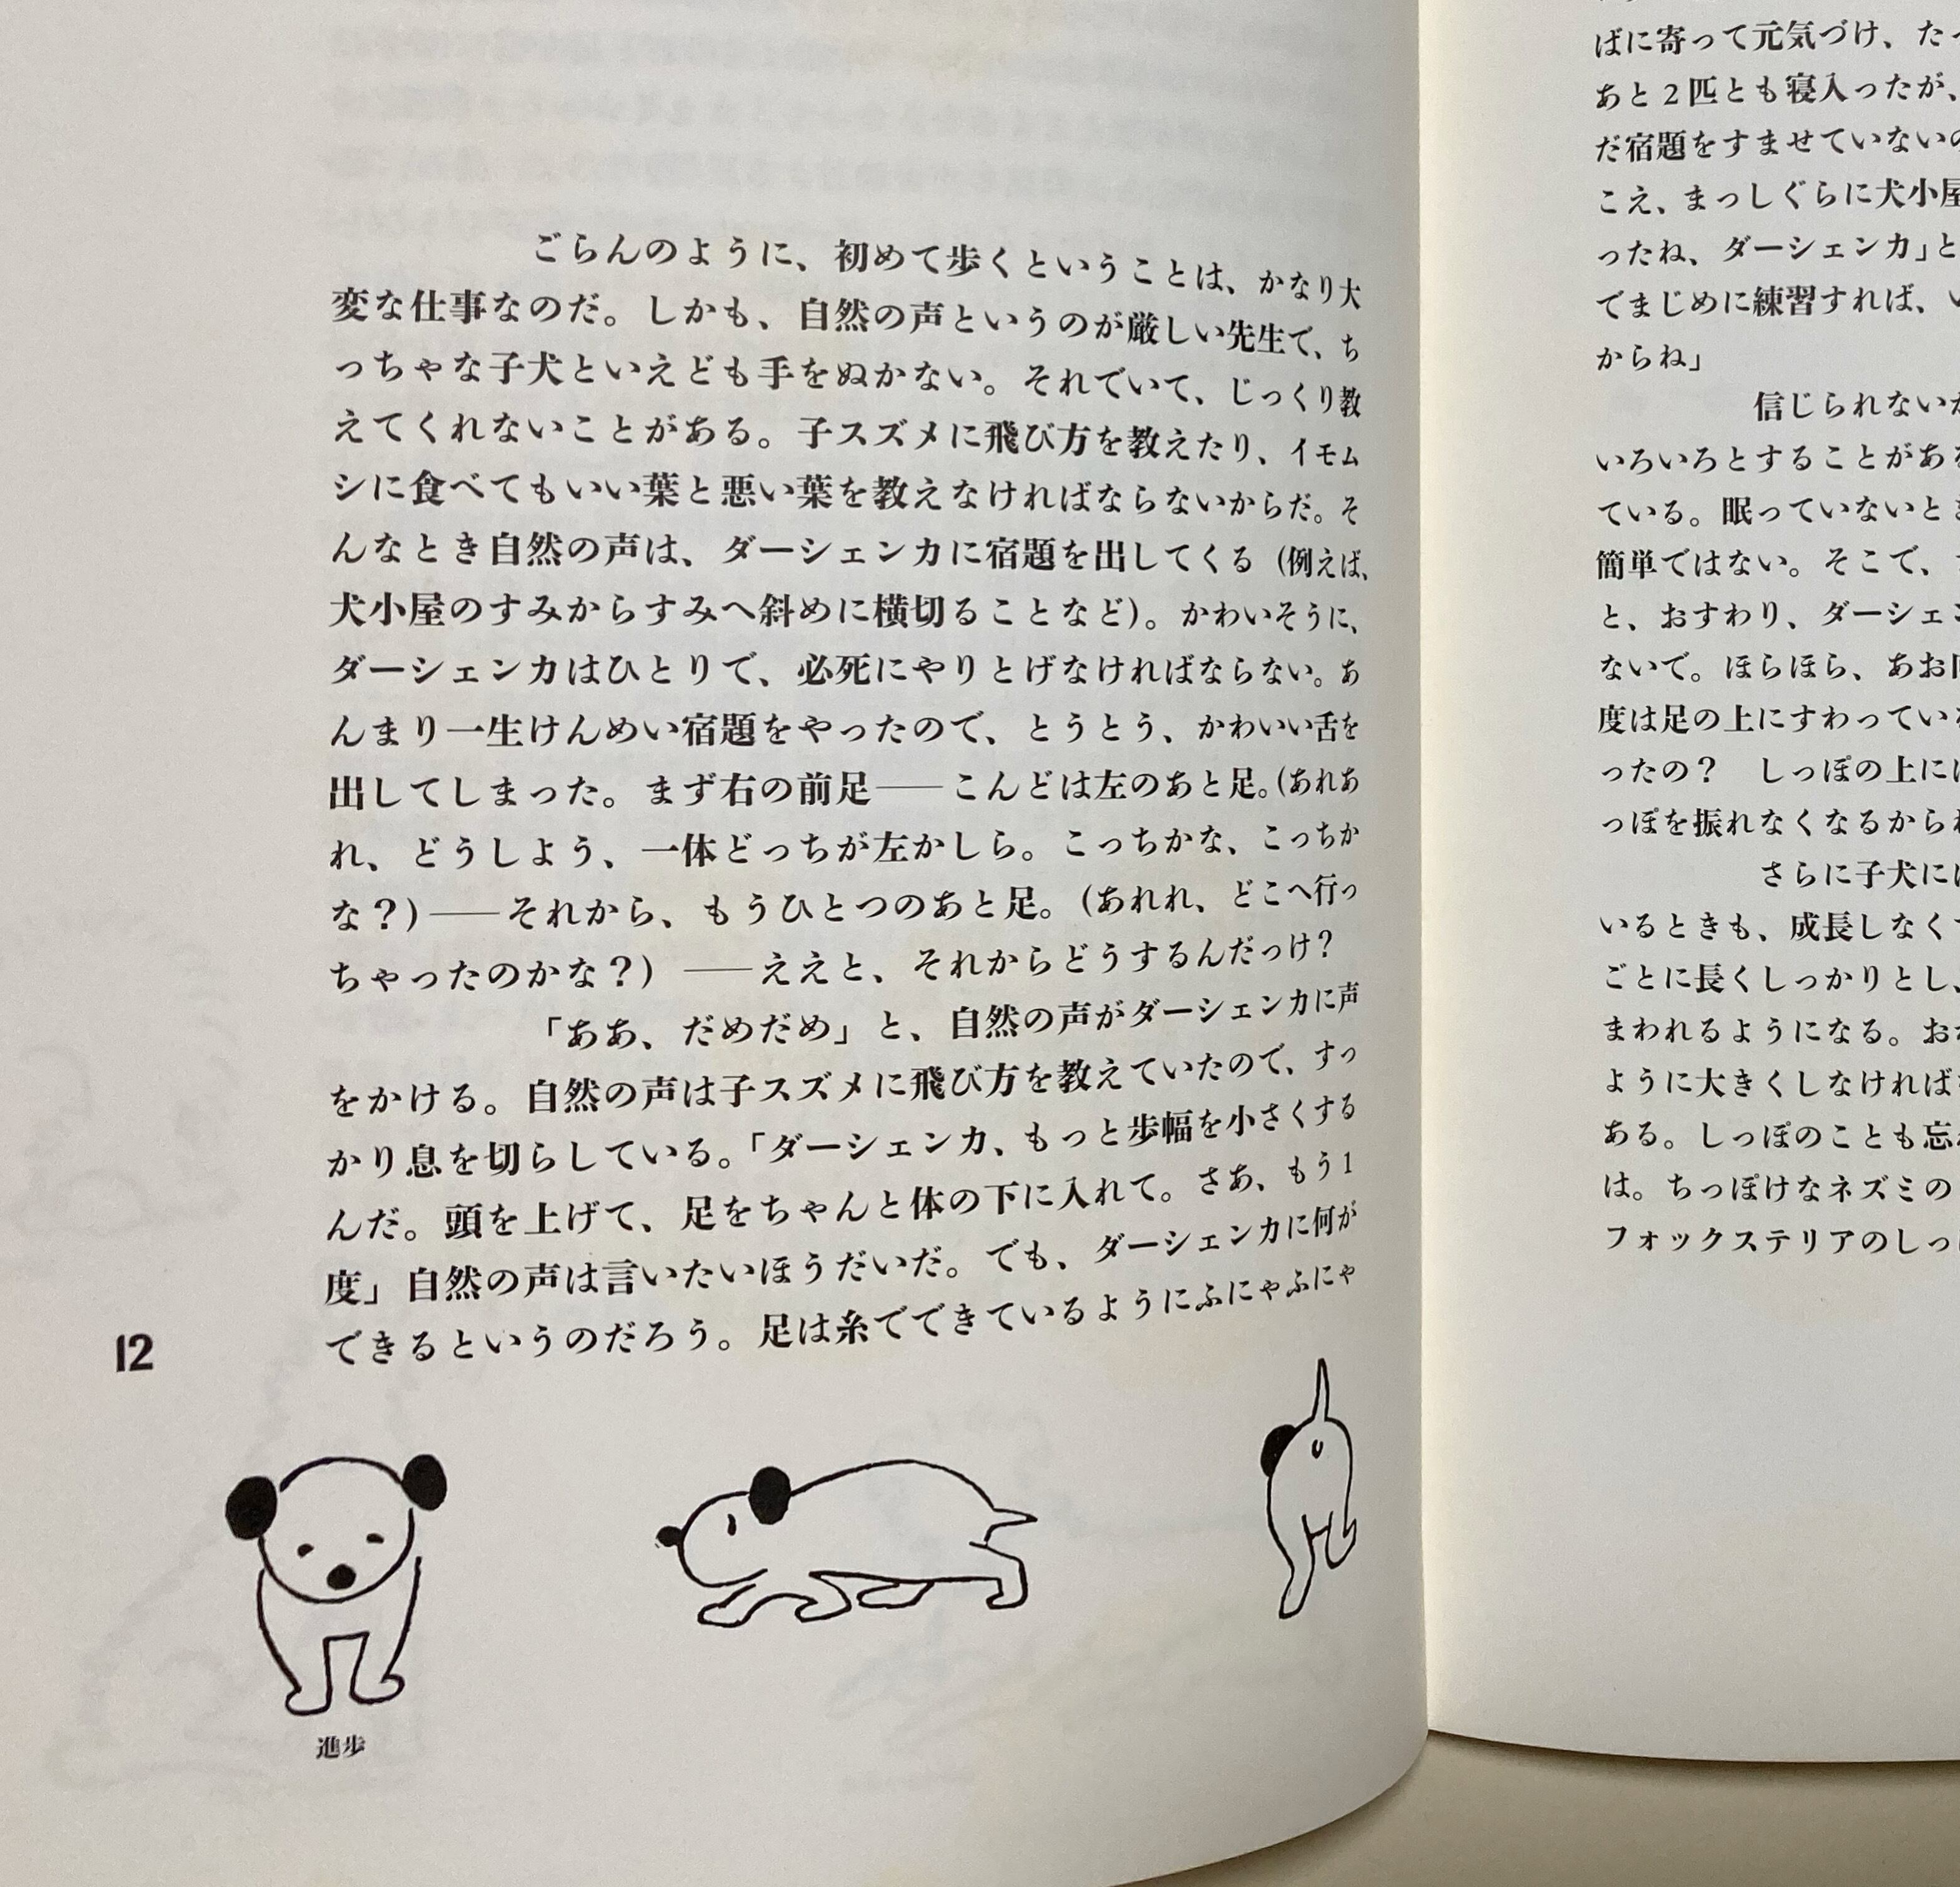 ごらんのように、初めて歩くということは、かなり大
変な仕事なのだ。しかも、自然の声というのが厳しい先生で、ち
っちゃな子犬といえども手をぬかない。それでいて、じっくり教
えてくれないことがある。子スズメに飛び方を教えたり、イモム
シに食べてもいい葉と悪い葉を教えなければならないからだ。そ
んなとき自然の声は、ダーシェンカに宿題を出してくる（例えば、
犬小屋のすみからすみへ斜めに横切ることなど）。かわいそうに、
ダーシェンカはひとりで、必死にやりとげなければならない。あ
んまり一生けんめい宿題をやったので、とうとう、かわいい舌を
出してしまった。まず右の前足――こんどは左のあと足。（あれあ
れ、どうしよう、一体どっちが左かしら。こっちかな、こっちか
な？）――それから、もうひとつのあと足。（あれれ、どこへ行っ
ちゃったのかな？）――ええと、それからどうするんだっけ？
「ああ、だめだめ」と、自然の声がダーシェンカに声
をかける。自然の声は子スズメに飛び方を教えていたので、すっ
かり息を切らしている。「ダーシェンカ、もっと歩幅を小さくする
んだ。頭を上げて、足をちゃんと体の下に入れて。さあ、もう1
度」自然の声は言いたいほうだいだ。でも、ダーシェンカに何が
できるというのだろう。足は糸でできているようにふにゃふにゃ
12
進歩
ばに寄って元気づけ、た
あと2匹とも寝入ったが、
だ宿題をすませていない
こえ、まっしぐらに犬小屋
ったね、ダーシェンカ」と
でまじめに練習すれば、
からね」
信じられない
いろいろとすることがあ
ている。眠っていないと
簡単ではない。そこで、
と、おすわり、ダーシェン
ないで。ほらほら、あお
度は足の上にすわってい
ったの？　しっぽの上に
っぽを振れなくなるから
さらに子犬に
いるときも、成長しなく
ごとに長くしっかりとし、
まわれるようになる。お
ように大きくしなければ
ある。しっぽのことも忘
は。ちっぽけなネズミの
フォックステリアのしっ